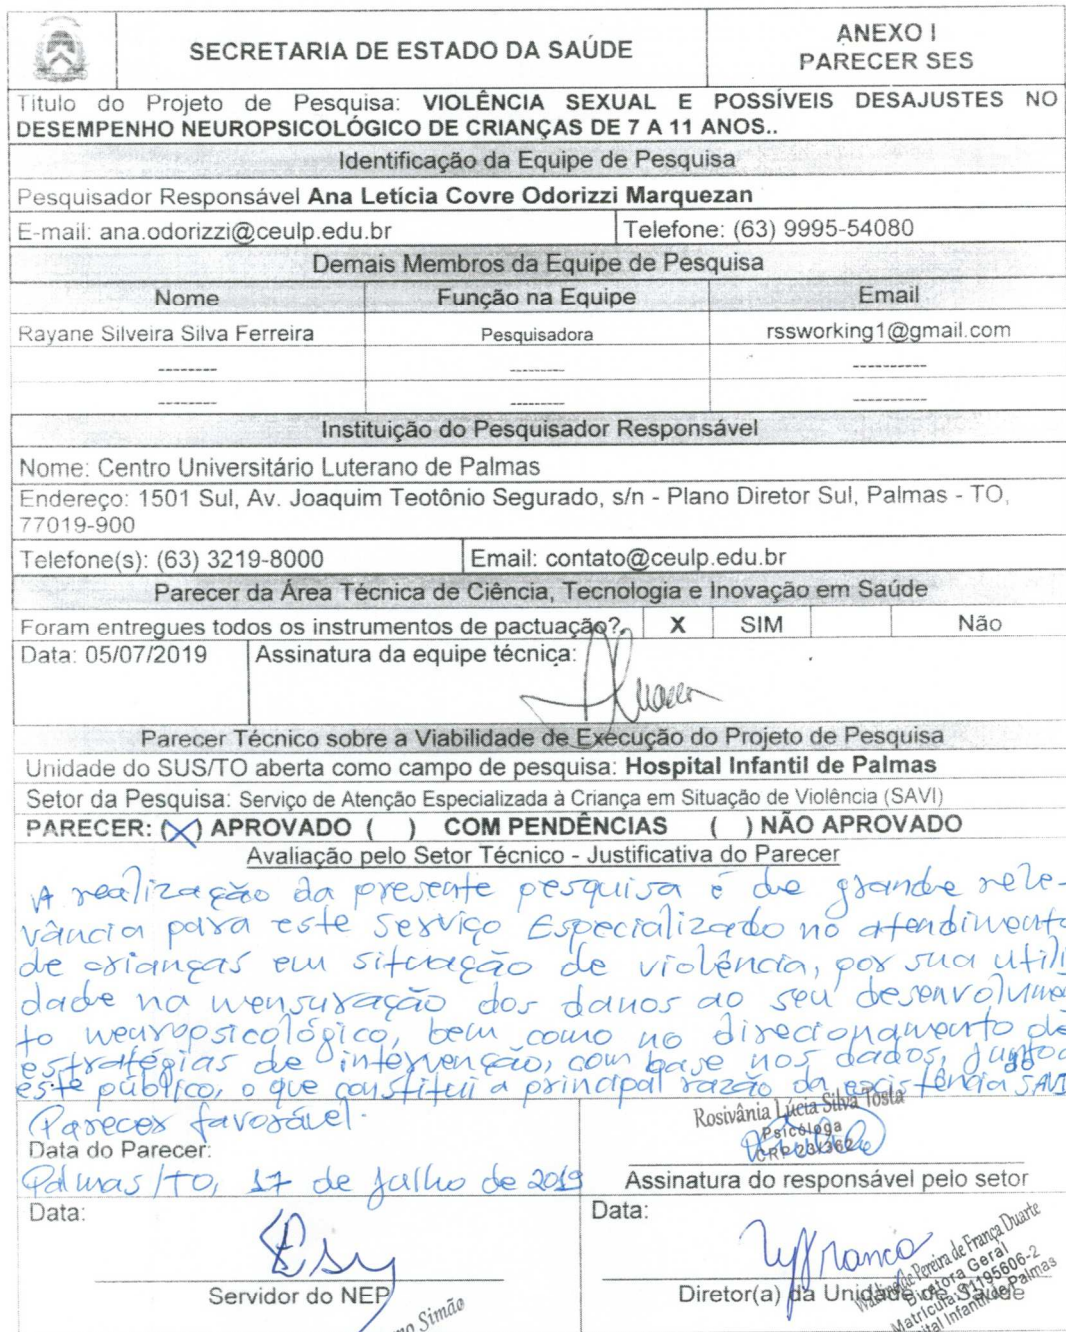 SECRETARIA DE ESTADO DA SAÚDE
ANEXO I
PARECER SES
Titulo do Projeto de Pesquisa: VIOLÊNCIA SEXUAL E POSSÍVEIS DESAJUSTES NO
DESEMPENHO NEUROPSICOLÓGICO DE CRIANÇAS DE 7 A 11 ANOS..
Identificação da Equipe de Pesquisa
Pesquisador Responsável Ana Letícia Covre Odorizzi Marquezan
E-mail: ana.odorizzi@ceulp.edu.br Telefone: (63) 9995-54080
Demais Membros da Equipe de Pesquisa
Nome Função na Equipe Email
Rayane Silveira Silva Ferreira Pesquisadora rssworking1@gmail.com
-------- --------- ----------
-------- --------- ----------
Instituição do Pesquisador Responsável
Nome: Centro Universitário Luterano de Palmas
Endereço: 1501 Sul, Av. Joaquim Teotônio Segurado, s/n - Plano Diretor Sul, Palmas - TO,
77019-900
Telefone(s): (63) 3219-8000 Email: contato@ceulp.edu.br
Parecer da Área Técnica de Ciência, Tecnologia e Inovação em Saúde
Foram entregues todos os instrumentos de pactuação? X SIM Não
Data: 05/07/2019 Assinatura da equipe técnica:
Parecer Técnico sobre a Viabilidade de Execução do Projeto de Pesquisa
Unidade do SUS/TO aberta como campo de pesquisa: Hospital Infantil de Palmas
Setor da Pesquisa: Serviço de Atenção Especializada à Criança em Situação de Violência (SAVI)
PARECER: (X) APROVADO ( ) COM PENDÊNCIAS ( ) NÃO APROVADO
Avaliação pelo Setor Técnico - Justificativa do Parecer
A realização da presente pesquisa é de grande rele-
vância para este serviço Especializado no atendimento
de crianças em situação de violência, por sua utili
dade na mensuração dos danos ao seu desenvolvimen
to neuropsicológico, bem como no direcionamento de
estratégias de intervenção, com base nos dados, junto a
este público, o que constitui a principal razão da existência do SAVI
Parecer favorável.
Rosivânia Lúcia Silva Tosta
Psicóloga
CRP 23/362
Data do Parecer:
Palmas/TO, 17 de julho de 2019
Assinatura do responsável pelo setor
Data:
Servidor do NEP
Simão
Data:
Diretor(a) da Unidade de Saúde
Pereira de França Duarte
Diretora Geral
Matrícula: 81195606-2
Hospital Infantil de Palmas